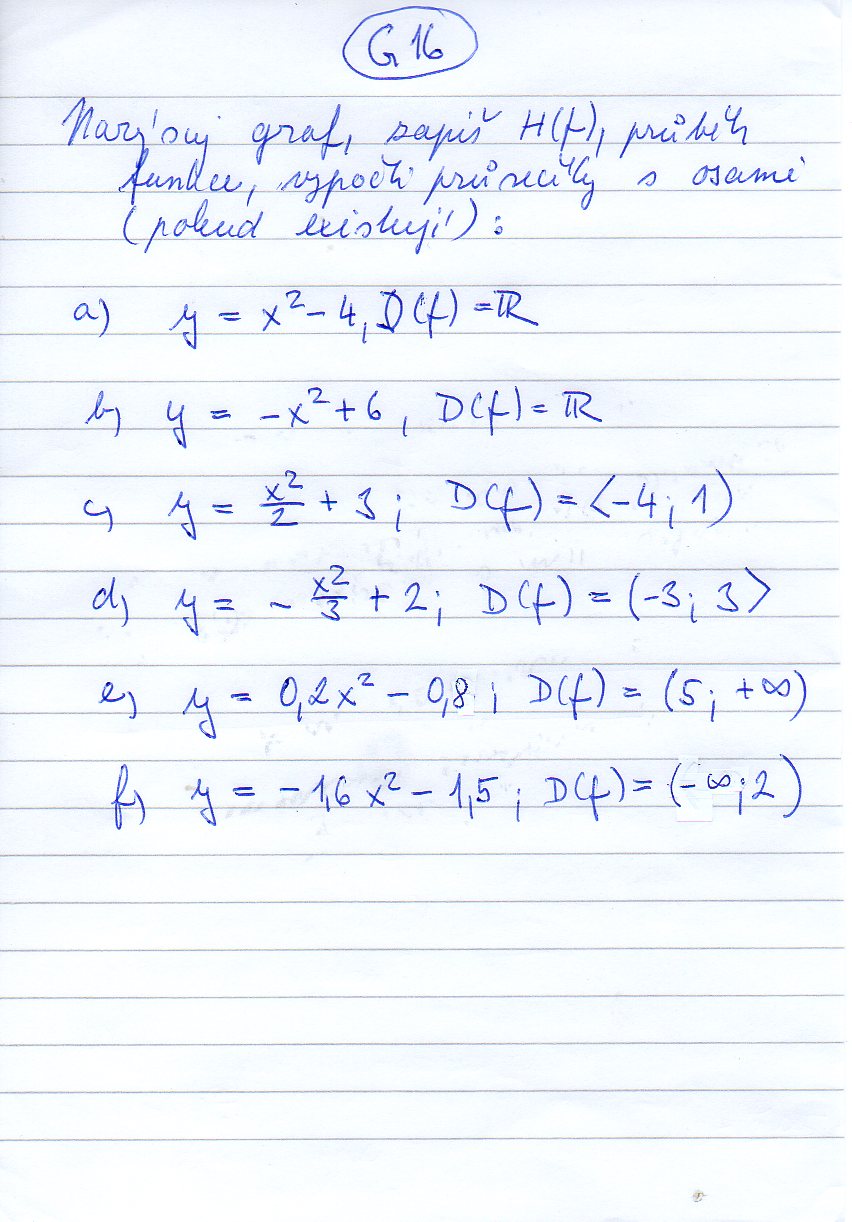 G16
Narýsuj graf, zapiš H(f), průběh
funkce, vypočti průsečíky s osami
(pokud existují):
a) y = x² - 4, D(f) = ℝ
b) y = -x² + 6, D(f) = ℝ
c) y = x²/2 + 3; D(f) = ⟨-4; 1)
d) y = - x²/3 + 2; D(f) = (-3; 3⟩
e) y = 0,2x² - 0,8; D(f) = (5; +∞)
f) y = -1,6x² - 1,5; D(f) = (-∞; 2)